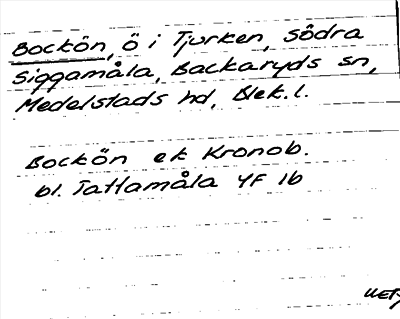 Bockön, ö i Tjurken, Södra
Siggamåla, Backaryds sn,
Medelstads hd, Blek.l.
Bockön ek Kronob.
bl. Tattamåla YF 16